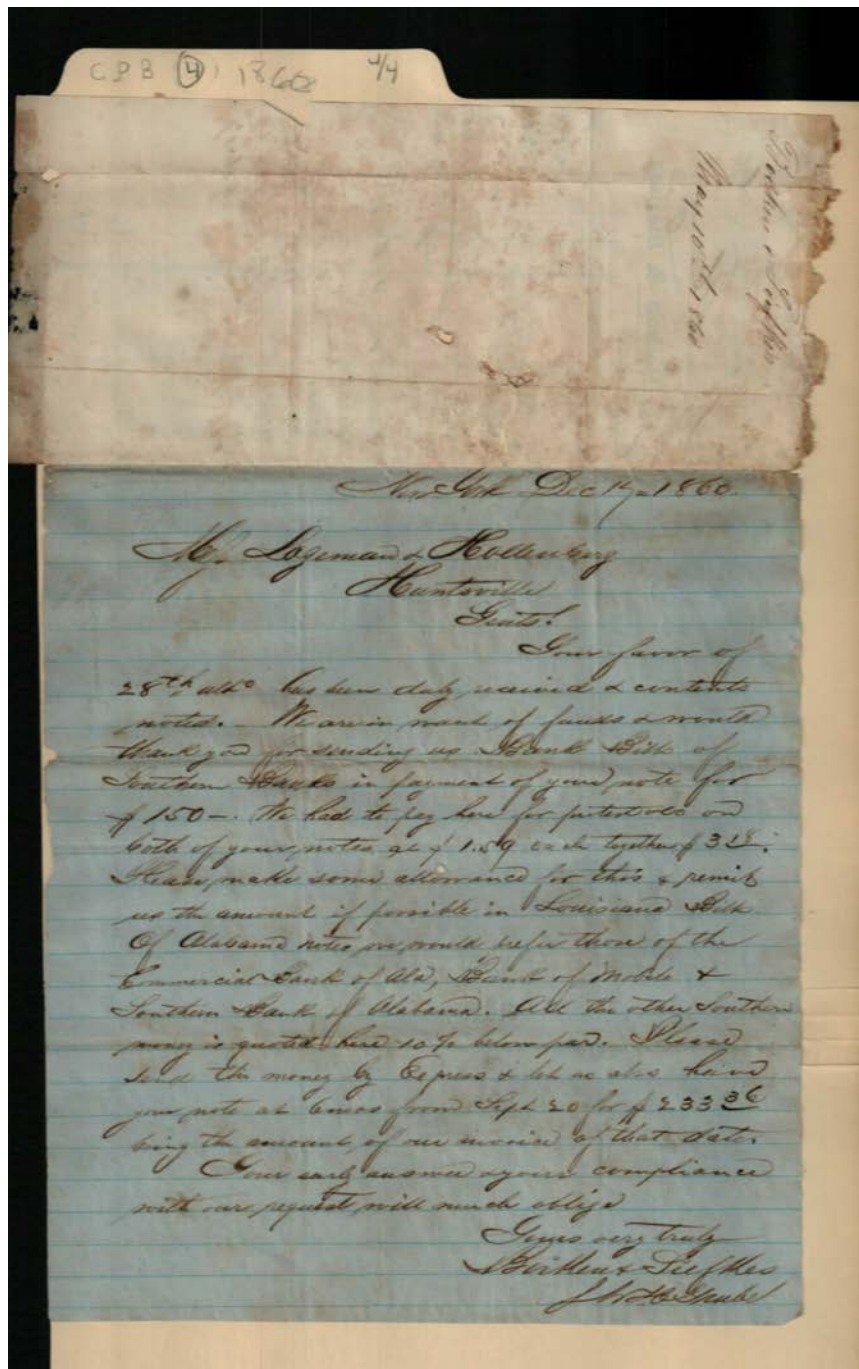 CPB (4) 1860 4/4
May 10th 1860
New York Dec 17 - 1860.
Logeman & Hollenberg
Huntsville
Gents!
Your favor of
28th ulto has been duly received & contents
noted. - We are in want of funds & would
thank you for sending us Bank Bills of
Southern Banks in payment of your note for
$ 150 -. We had to pay here for protest on
both of your notes at $ 1.59 each together $ 3.18.
Please make some allowance for this & remit
us the amount if possible in Louisiana Bills.
Of Alabama notes we would prefer those of the
Commercial Bank of Ala, Bank of Mobile &
Southern Bank of Alabama. All the other Southern
money is quoted here 10 % below par. Please
send the money by Express & let us also have
your note at 6 mos from Sept 20 for $ 233 36
being the amount of our invoice of that date.
Your early answer & your compliance
with our request will much oblige
Yours very truly
& Liefkes